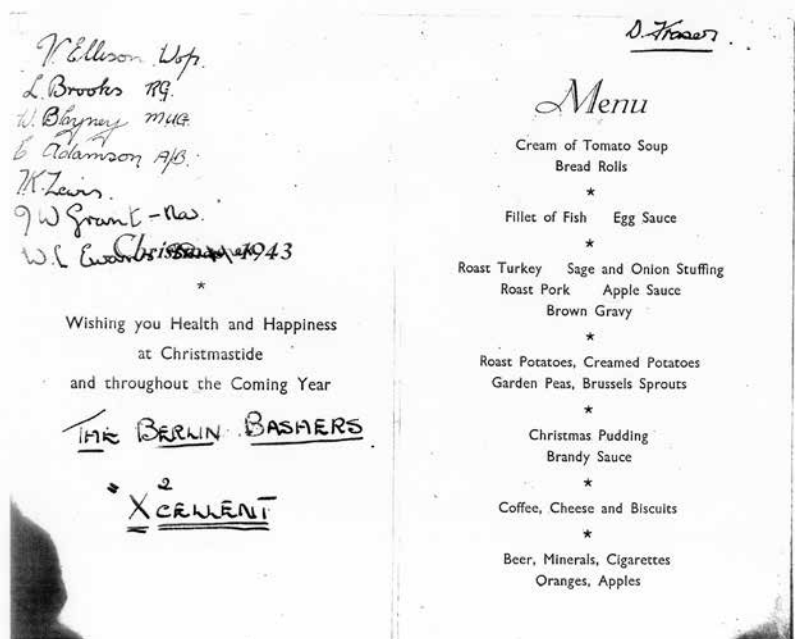 V Ellison Wop.
L. Brooks RG.
W. Blayney MUG.
E Adamson A/B.
K. Lewis.
J W Grant - Nav.
W. L Evans
Christmas 1943
*
Wishing you Health and Happiness
at Christmastide
and throughout the Coming Year
THE BERLIN BASHERS
"X²CELLENT
D. Fraser.
Menu
Cream of Tomato Soup
Bread Rolls
*
Fillet of Fish Egg Sauce
*
Roast Turkey Sage and Onion Stuffing
Roast Pork Apple Sauce
Brown Gravy
*
Roast Potatoes, Creamed Potatoes
Garden Peas, Brussels Sprouts
*
Christmas Pudding
Brandy Sauce
*
Coffee, Cheese and Biscuits
*
Beer, Minerals, Cigarettes
Oranges, Apples